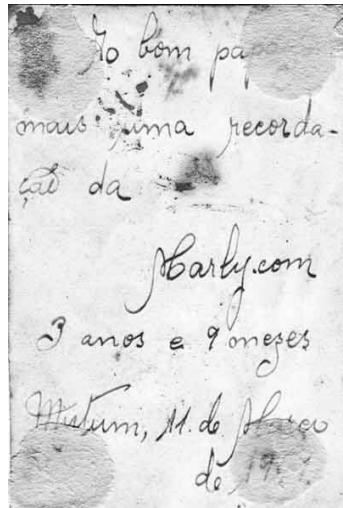 Ao bom papa
mais uma recorda-
ção da
Marly.com
3 anos e 9 mezes
Mutum, 11 de Março
de